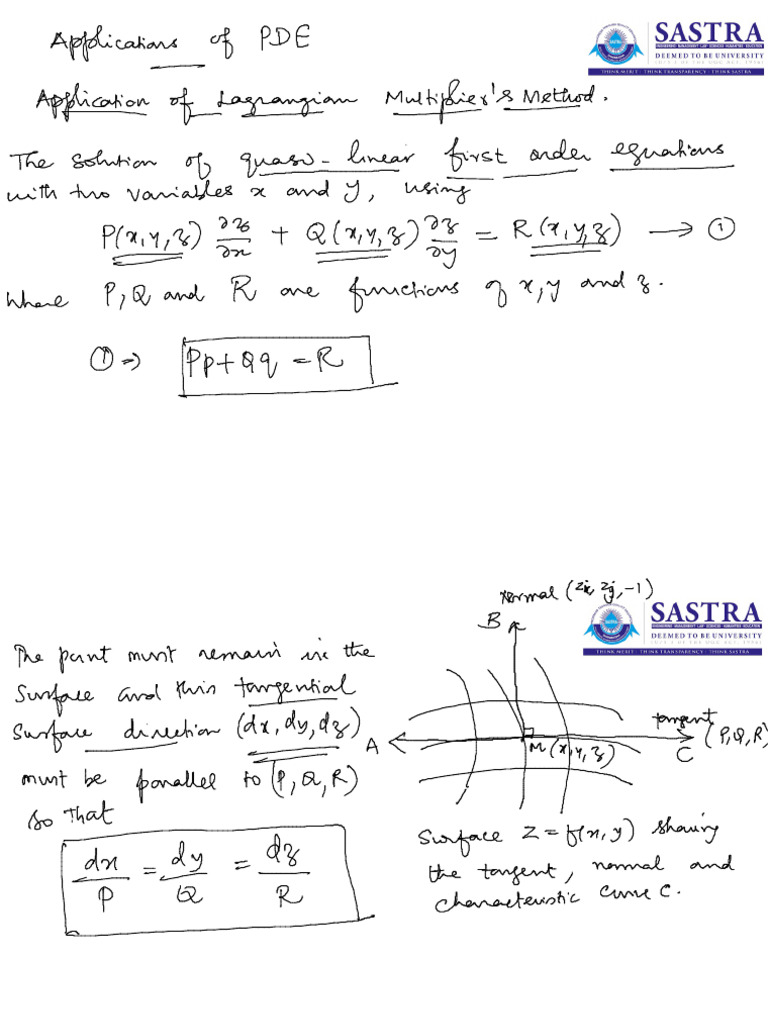 Applications of PDE
SASTRA
ENGINEERING MANAGEMENT LAW SCIENCES HUMANITIES EDUCATION
DEEMED TO BE UNIVERSITY
(U/S 3 OF THE UGC ACT, 1956)
THINK MERIT | THINK TRANSPARENCY | THINK SASTRA
Application of Lagrangian Multiplier's Method.
The solution of quasi-linear first order equations
with two variables x and y, using
P(x,y,z) ∂z/∂x + Q(x,y,z) ∂z/∂y = R(x,y,z) → ①
Where P, Q and R are functions of x, y and z.
① ⇒ Pp + Qq = R
normal (zx, zy, -1)
B
SASTRA
ENGINEERING MANAGEMENT LAW SCIENCES HUMANITIES EDUCATION
DEEMED TO BE UNIVERSITY
(U/S 3 OF THE UGC ACT, 1956)
THINK MERIT | THINK TRANSPARENCY | THINK SASTRA
The point must remain in the
surface and this tangential
surface direction (dx, dy, dz)
must be parallel to (P, Q, R)
so that
dx/P = dy/Q = dz/R
A
M(x,y,z)
tangent
C (P, Q, R)
Surface z = f(x,y) showing
the tangent, normal and
characteristic curve C.